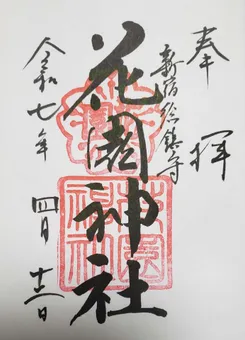 奉拝
新宿総鎮守
花園神社
令和七年四月十二日
花園神社